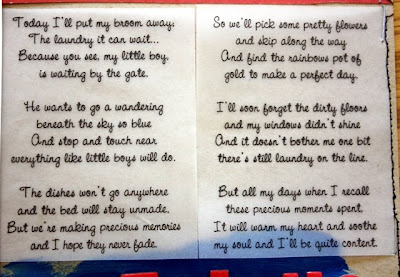 Today I'll put my broom away,
The laundry it can wait...
Because you see, my little boy,
is waiting by the gate.
He wants to go a wandering
beneath the sky so blue
And stop and touch near
everything like little boys will do.
The dishes won't go anywhere
and the bed will stay unmade.
But we're making precious memories
and I hope they never fade.
So we'll pick some pretty flowers
and skip along the way
And find the rainbows pot of
gold to make a perfect day.
I'll soon forget the dirty floors
and my windows didn't shine
And it doesn't bother me one bit
there's still laundry on the line.
But all my days when I recall
these precious moments spent,
It will warm my heart and soothe
my soul and I'll be quite content.